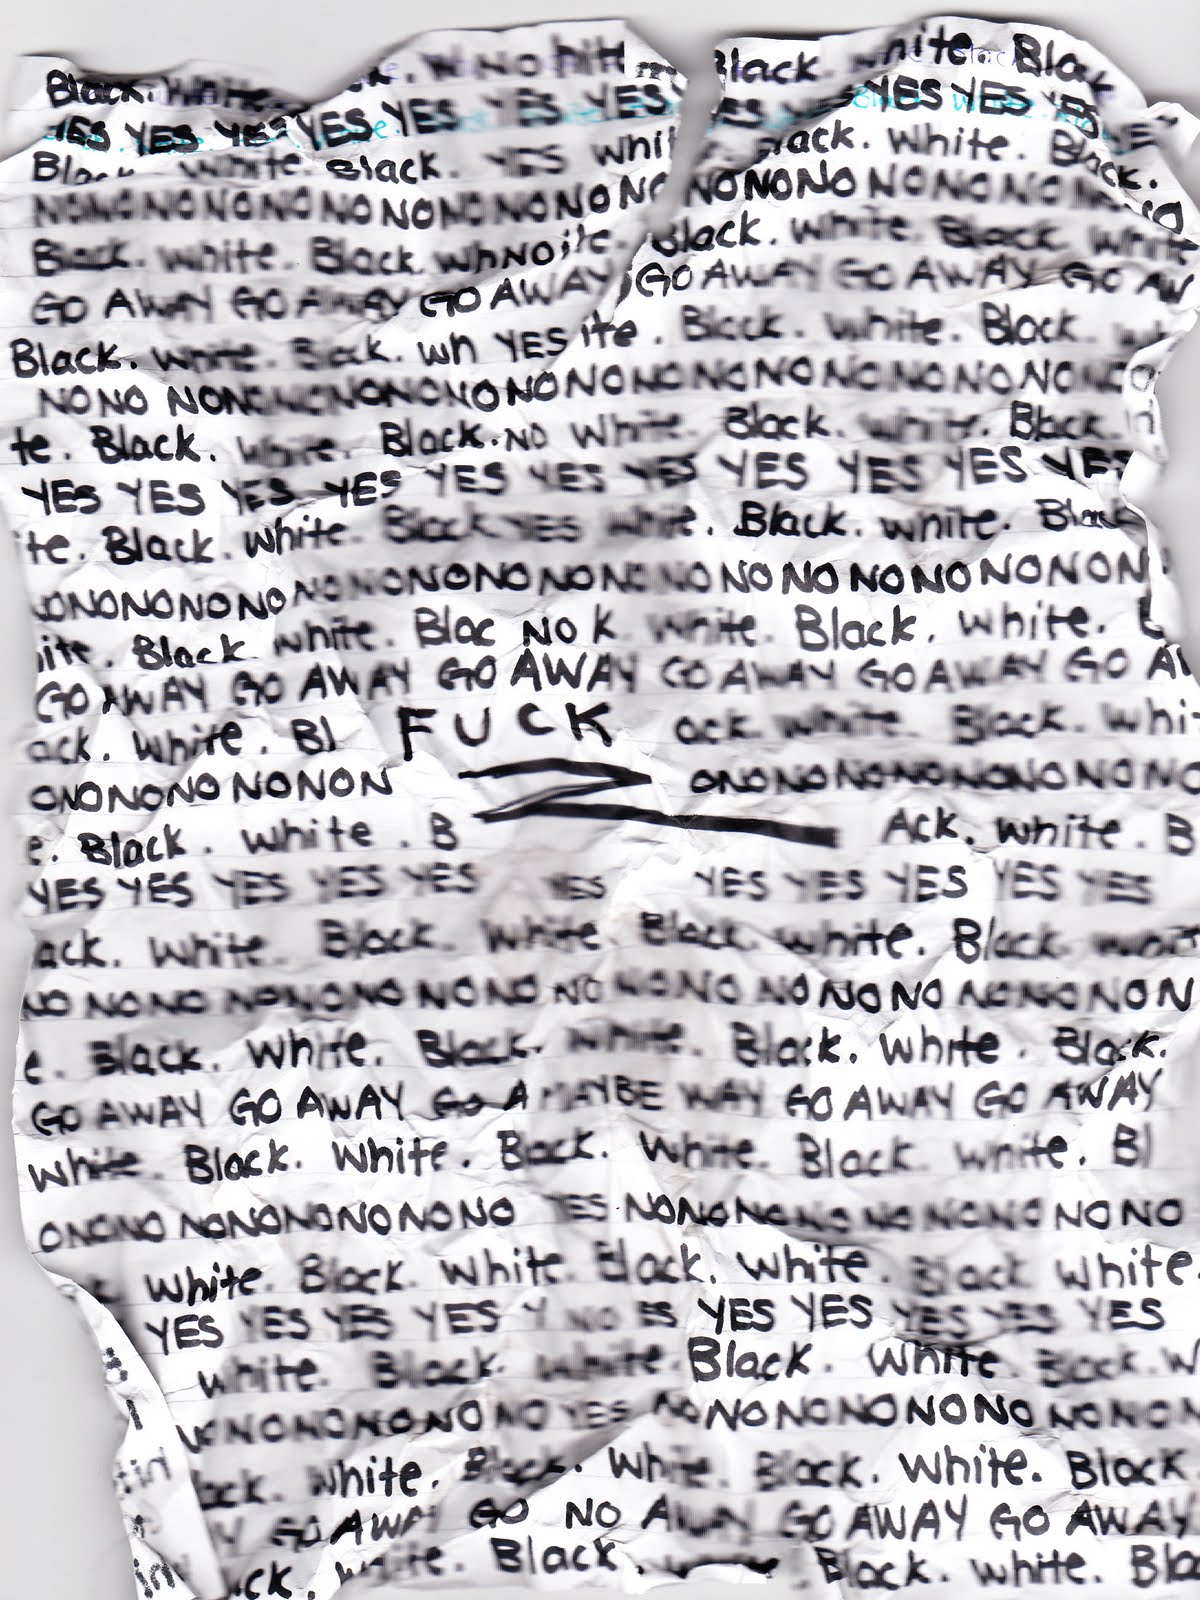 Black. White. W NO hite Black. White. Black
YES YES YES YES YES YES YES YES YES YES YES
Black White. Black. YES Whit Black. White. Black.
NONONONONONONONONONONONONO NONONONONONONONO
Black. White. Black. WhNOite. Black. White. Black. White
GO AWAY GO AWAY GO AWAY GO AWAY GO AWAY GO AW
Black. White. Black. Wh YES ite. Black. White. Black. Wh
NONO NONONONONONONONONONONONONONONONONONO
te. Black. White. Black. NO White. Black. White. Black.
YES YES YES YES YES YES YES YES YES YES YES
ite. Black. White. Black YES White. Black. White. Black
NONONONONONONONONONONONONONONONONONON
ite. Black White. Blac NO k. White. Black. White. B
GO AWAY GO AWAY GO AWAY GO AWAY GO AWAY GO A
ack. White. Bl FUCK ack. White. Black. Whi
ONONONONONON ONONONONONONONONONO
e. Black. White. B Ack. White. B
YES YES YES YES YES YES YES YES YES YES YES
ack. White. Black. White. Black. White. Black. White
NONONONONONONONONONONONONONONONONONON
e. Black. White. Black. White. Black. White. Black.
GO AWAY GO AWAY GO A MAYBE WAY GO AWAY GO AWAY
White. Black. White. Black. White. Black. White. Bl
ONONONONONONONONO YES NONONONONONONONONO
White. Black. White. Black. White. Black White.
YES YES YES YES Y NO ES YES YES YES YES YES
White. Black. White. Black. White. Black. W
NONONONONONO YES NONONONONONONONON
lack. White. Black. White. Black. White. Black.
GO AWAY GO NO AWAY GO AWAY GO AWAY
ck. White. Black. Black. White. Bla